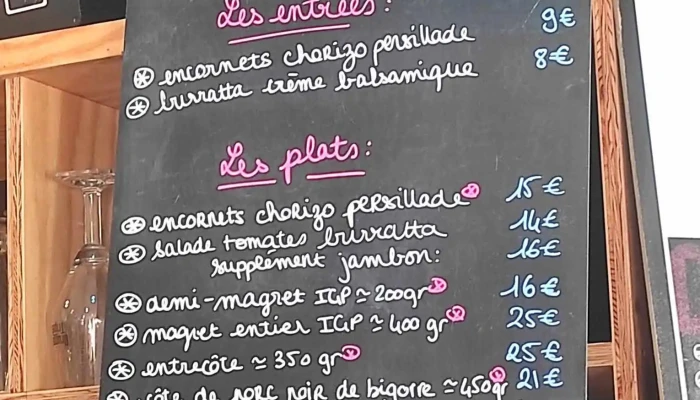 Les entrées :
encornets chorizo persillade 9€
burratta crème balsamique 8€
Les plats :
encornets chorizo persillade 15€
salade tomates burratta 14€
supplément jambon : 16€
demi-magret IGP ≃ 200gr 16€
magret entier IGP ≃ 400 gr 25€
entrecôte ≃ 350 gr 25€
côte de porc noir de bigorre ≃ 450gr 21€